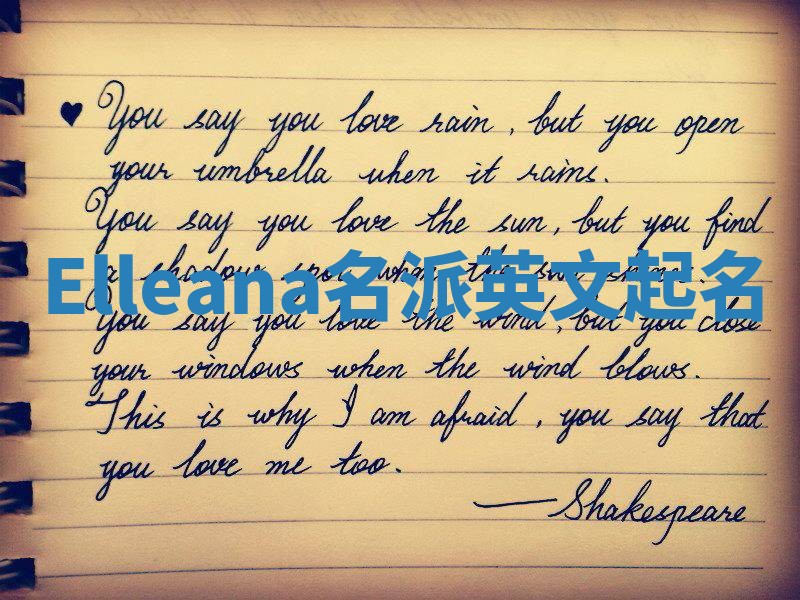 ♥ You say you love rain, but you open
your umbrella when it rains.
You say you love the sun, but you find
a shadow spot when the sun shines.
Elleana名派英文起名
You say you love the wind, but you close
your windows when the wind blows.
This is why I am afraid, you say that
you love me too.
—Shakespeare